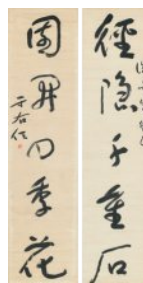 徑隱千重石
園開四季花
于右任